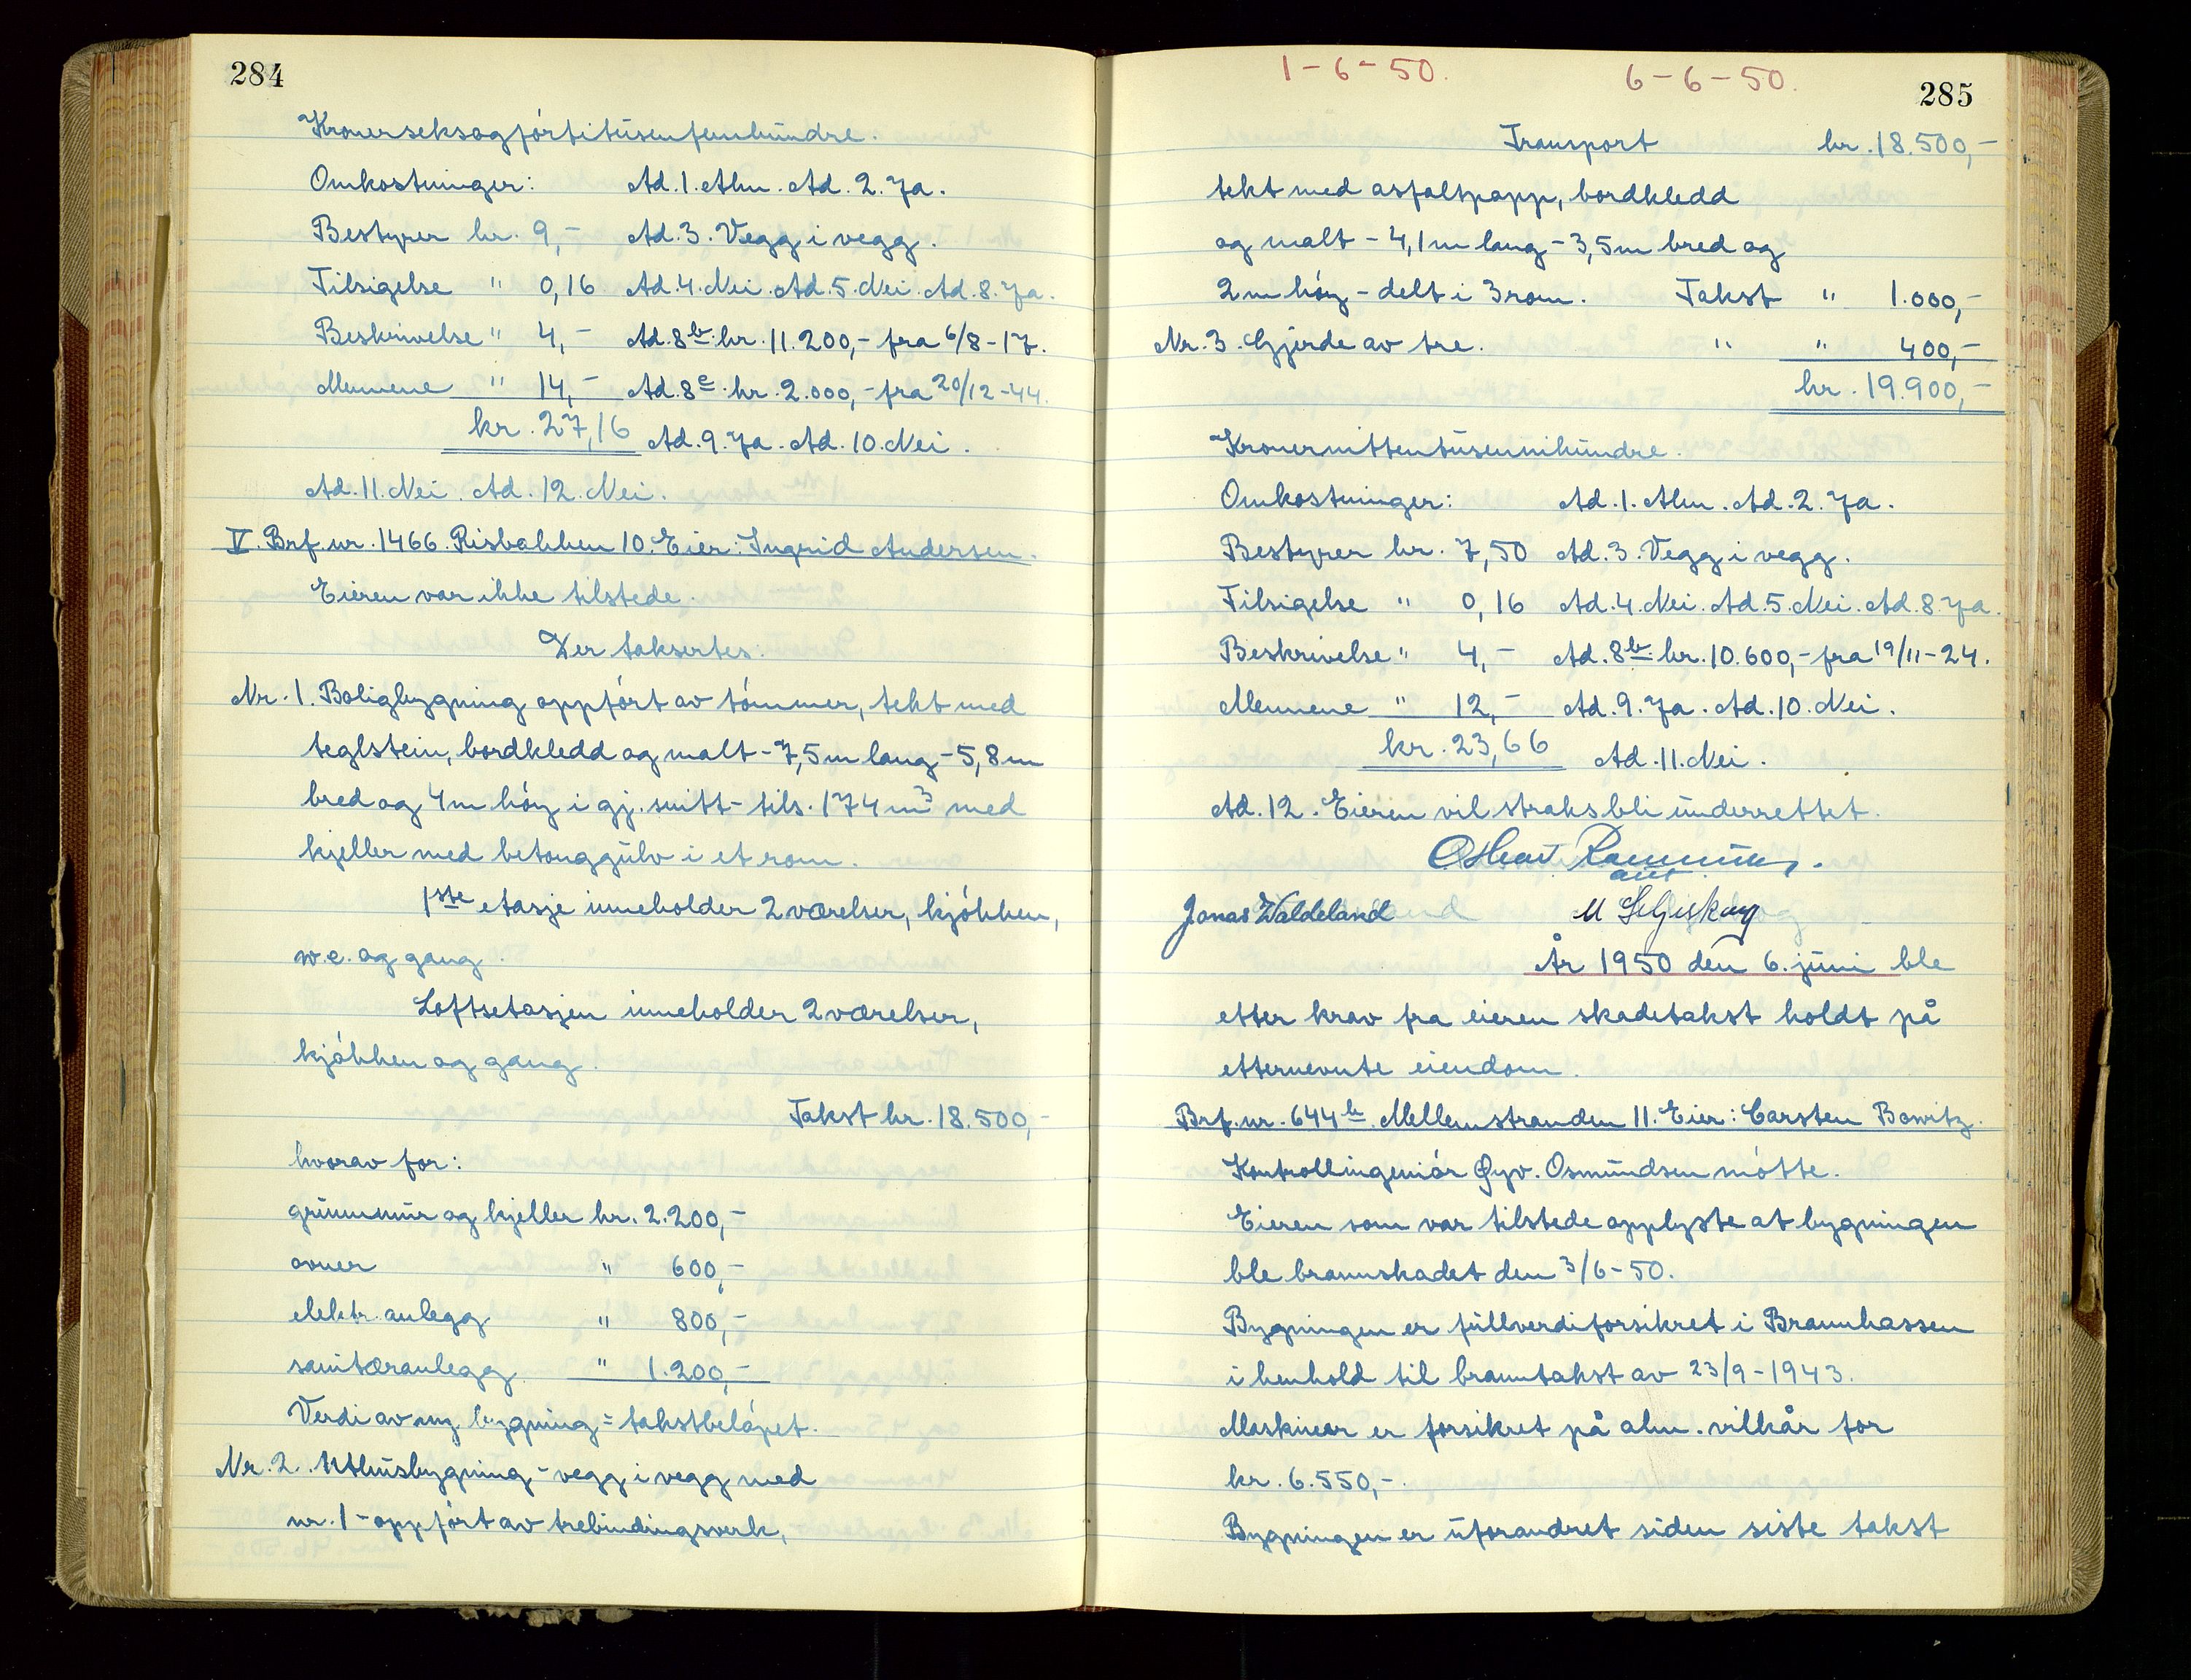 284
Kronerseksogførtitusenfemhundre.
Omkostninger: Ad. 1. Alm. Ad. 2. Ja.
Bestyrer kr. 9,- Ad. 3. Vegg i vegg.
Tilsigelse " 0,16 Ad. 4. Nei. Ad. 5. Nei. Ad. 8. Ja.
Beskrivelse " 4,- Ad. 8b. kr. 11.200,- fra 6/8-17.
Mennene " 14,- Ad. 8c. kr. 2.000,- fra 20/12-44.
kr. 27,16 Ad. 9. Ja. Ad. 10. Nei.
Ad. 11. Nei. Ad. 12. Nei.
V. Brf. nr. 1466. Risbakken 10. Eier: Ingrid Andersen.
Eieren var ikke tilstede.
Der taksertes:
Nr. 1. Boligbygning oppført av tømmer, tekt med
teglstein, bordkledd og malt - 7,5 m lang - 5,8 m
bred og 4 m høy i gj. snitt - tils. 174 m³ med
kjeller med betonggulv i et rom.
1ste etasje inneholder 2 værelser, kjøkken,
w.c. og gang.
Loftsetasjen inneholder 2 værelser,
kjøkken og gang.
Takst kr. 18.500,-
hvorav for:
grunnmur og kjeller kr. 2.200,-
ovner " 600,-
elektr. anlegg " 800,-
sanitæranlegg " 1.200,-
Verdi av ny bygning = takstbeløpet.
Nr. 2. Uthusbygning - vegg i vegg med
nr. 1 - oppført av trebindingsverk,
1-6-50. 6-6-50.
285
Transport kr. 18.500,-
tekt med asfaltpapp, bordkledd
og malt - 4,1 m lang - 3,5 m bred og
2 m høy - delt i 3 rom. Takst " 1.000,-
Nr. 3. Gjerde av tre. " " 400,-
kr. 19.900,-
Kronernittentusennihundre.
Omkostninger: Ad. 1. Alm. Ad. 2. Ja.
Bestyrer kr. 7,50 Ad. 3. Vegg i vegg.
Tilsigelse " 0,16 Ad. 4. Nei. Ad. 5. Nei. Ad. 8. Ja.
Beskrivelse " 4,- Ad. 8b. kr. 10.600,- fra 19/11-24.
Mennene " 12,- Ad. 9. Ja. Ad. 10. Nei.
kr. 23,66 Ad. 11. Nei.
Ad. 12. Eieren vil straks bli underrettet.
Jonas Waldeland
År 1950 den 6. juni ble
etter krav fra eieren skadetakst holdt på
etternevnte eiendom.
Brf. nr. 644b. Mellemstranden 11. Eier: Carsten Bowitz.
Kontrollingeniør Øyv. Osmundsen møtte.
Eieren som var tilstede opplyste at bygningen
ble brannskadet den 3/6-50.
Bygningen er fullverdiforsikret i Brannkassen
i henhold til branntakst av 23/9-1943.
Maskineri er forsikret på alm. vilkår for
kr. 6.550,-.
Bygningen er uforandret siden siste takst